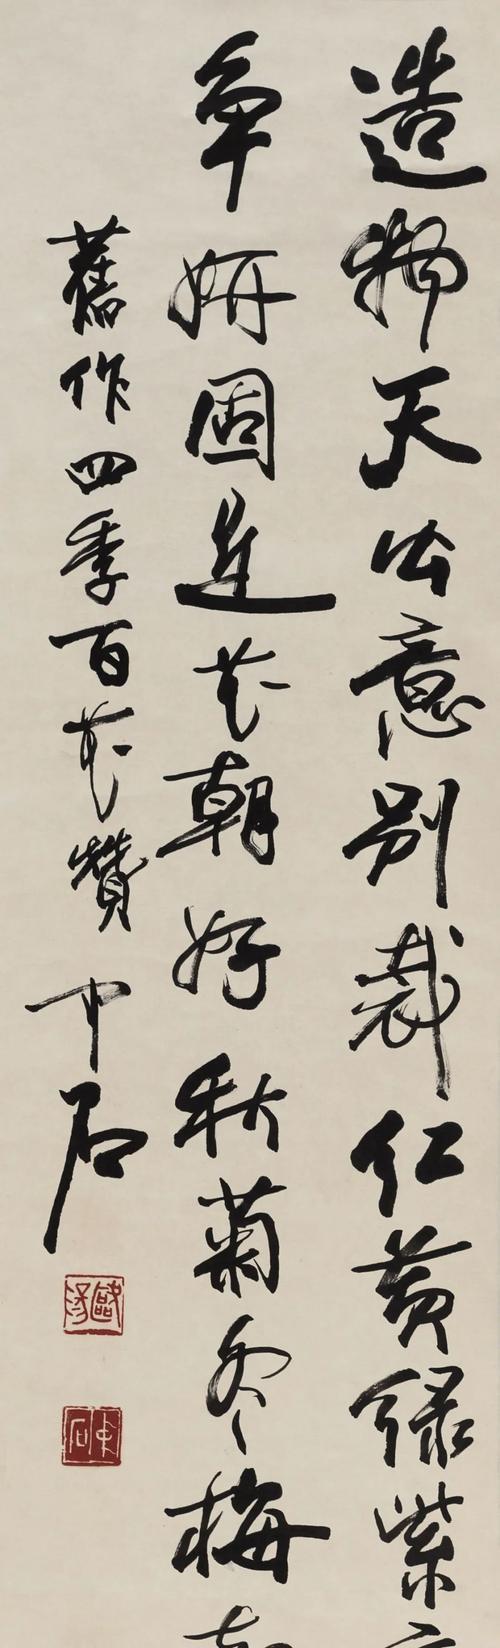 造物天公意别裁红黄绿紫
争妍固是花朝好秋菊冬梅
旧作四季百花赞 中石
欧阳
中石